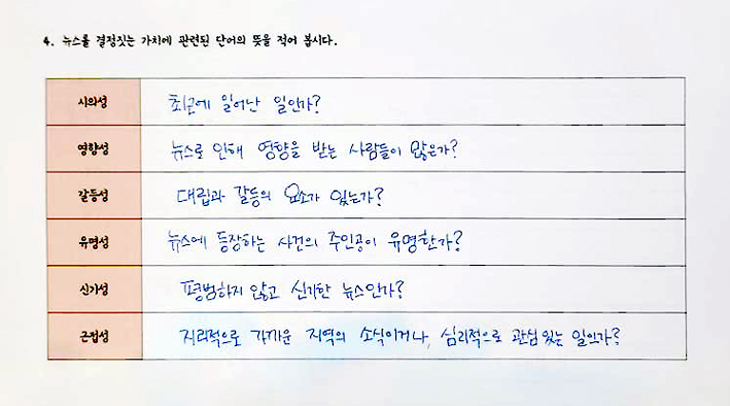 4. 뉴스를 결정짓는 가치에 관련된 단어의 뜻을 적어 봅시다.
시의성 최근에 일어난 일인가?
영향성 뉴스로 인해 영향을 받는 사람들이 많은가?
갈등성 대립과 갈등의 요소가 있는가?
유명성 뉴스에 등장하는 사건의 주인공이 유명한가?
신기성 평범하지 않고 신기한 뉴스인가?
근접성 지리적으로 가까운 지역의 소식이거나, 심리적으로 관심 있는 일인가?